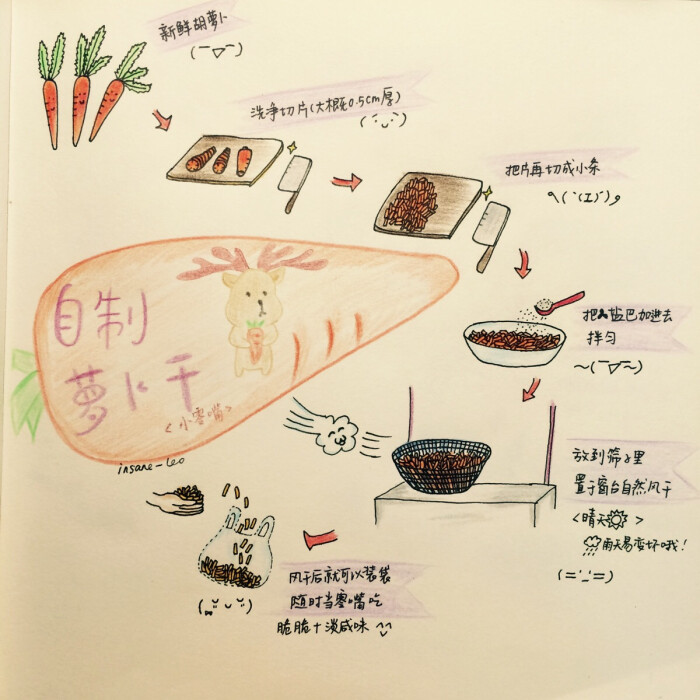 新鲜胡萝卜
洗净切片(大概0.5cm厚)
把片再切成小条
自制
萝卜干
<小零嘴>
insane-leo
把盐巴加进去
拌匀
放到筛子里
置于窗台自然风干
<晴天>
雨天易变坏哦!
风干后就可以装袋
随时当零嘴吃
脆脆+淡咸味 ^^